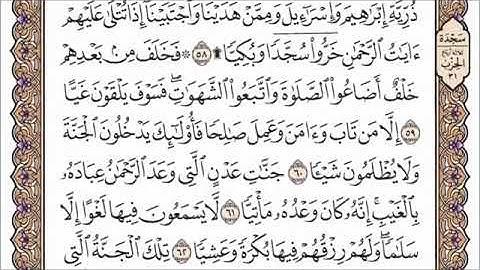 ذُرِّيَّةِ إِبۡرَٰهِيمَ وَإِسۡرَٰٓءِيلَ وَمِمَّنۡ هَدَيۡنَا وَٱجۡتَبَيۡنَآۚ إِذَا تُتۡلَىٰ عَلَيۡهِمۡ
ءَايَٰتُ ٱلرَّحۡمَٰنِ خَرُّواْۤ سُجَّدٗا وَبُكِيّٗا۩ ٥٨ ۞ فَخَلَفَ مِنۢ بَعۡدِهِمۡ
خَلۡفٌ أَضَاعُواْ ٱلصَّلَوٰةَ وَٱتَّبَعُواْ ٱلشَّهَوَٰتِۖ فَسَوۡفَ يَلۡقَوۡنَ غَيًّا
٥٩ إِلَّا مَن تَابَ وَءَامَنَ وَعَمِلَ صَٰلِحٗا فَأُوْلَٰٓئِكَ يَدۡخُلُونَ ٱلۡجَنَّةَ
وَلَا يُظۡلَمُونَ شَيۡـٔٗا ٦٠ جَنَّٰتِ عَدۡنٍ ٱلَّتِي وَعَدَ ٱلرَّحۡمَٰنُ عِبَادَهُۥ
بِٱلۡغَيۡبِۚ إِنَّهُۥ كَانَ وَعۡدُهُۥ مَأۡتِيّٗا ٦١ لَّا يَسۡمَعُونَ فِيهَا لَغۡوًا إِلَّا
سَلَٰمٗاۖ وَلَهُمۡ رِزۡقُهُمۡ فِيهَا بُكۡرَةٗ وَعَشِيّٗا ٦٢ تِلۡكَ ٱلۡجَنَّةُ ٱلَّتِي
سجدة
الحزب
٣١